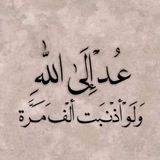 عُدْ إِلَى اللهِ
وَلَوْ أَذْنَبْتَ أَلْفَ مَرَّة